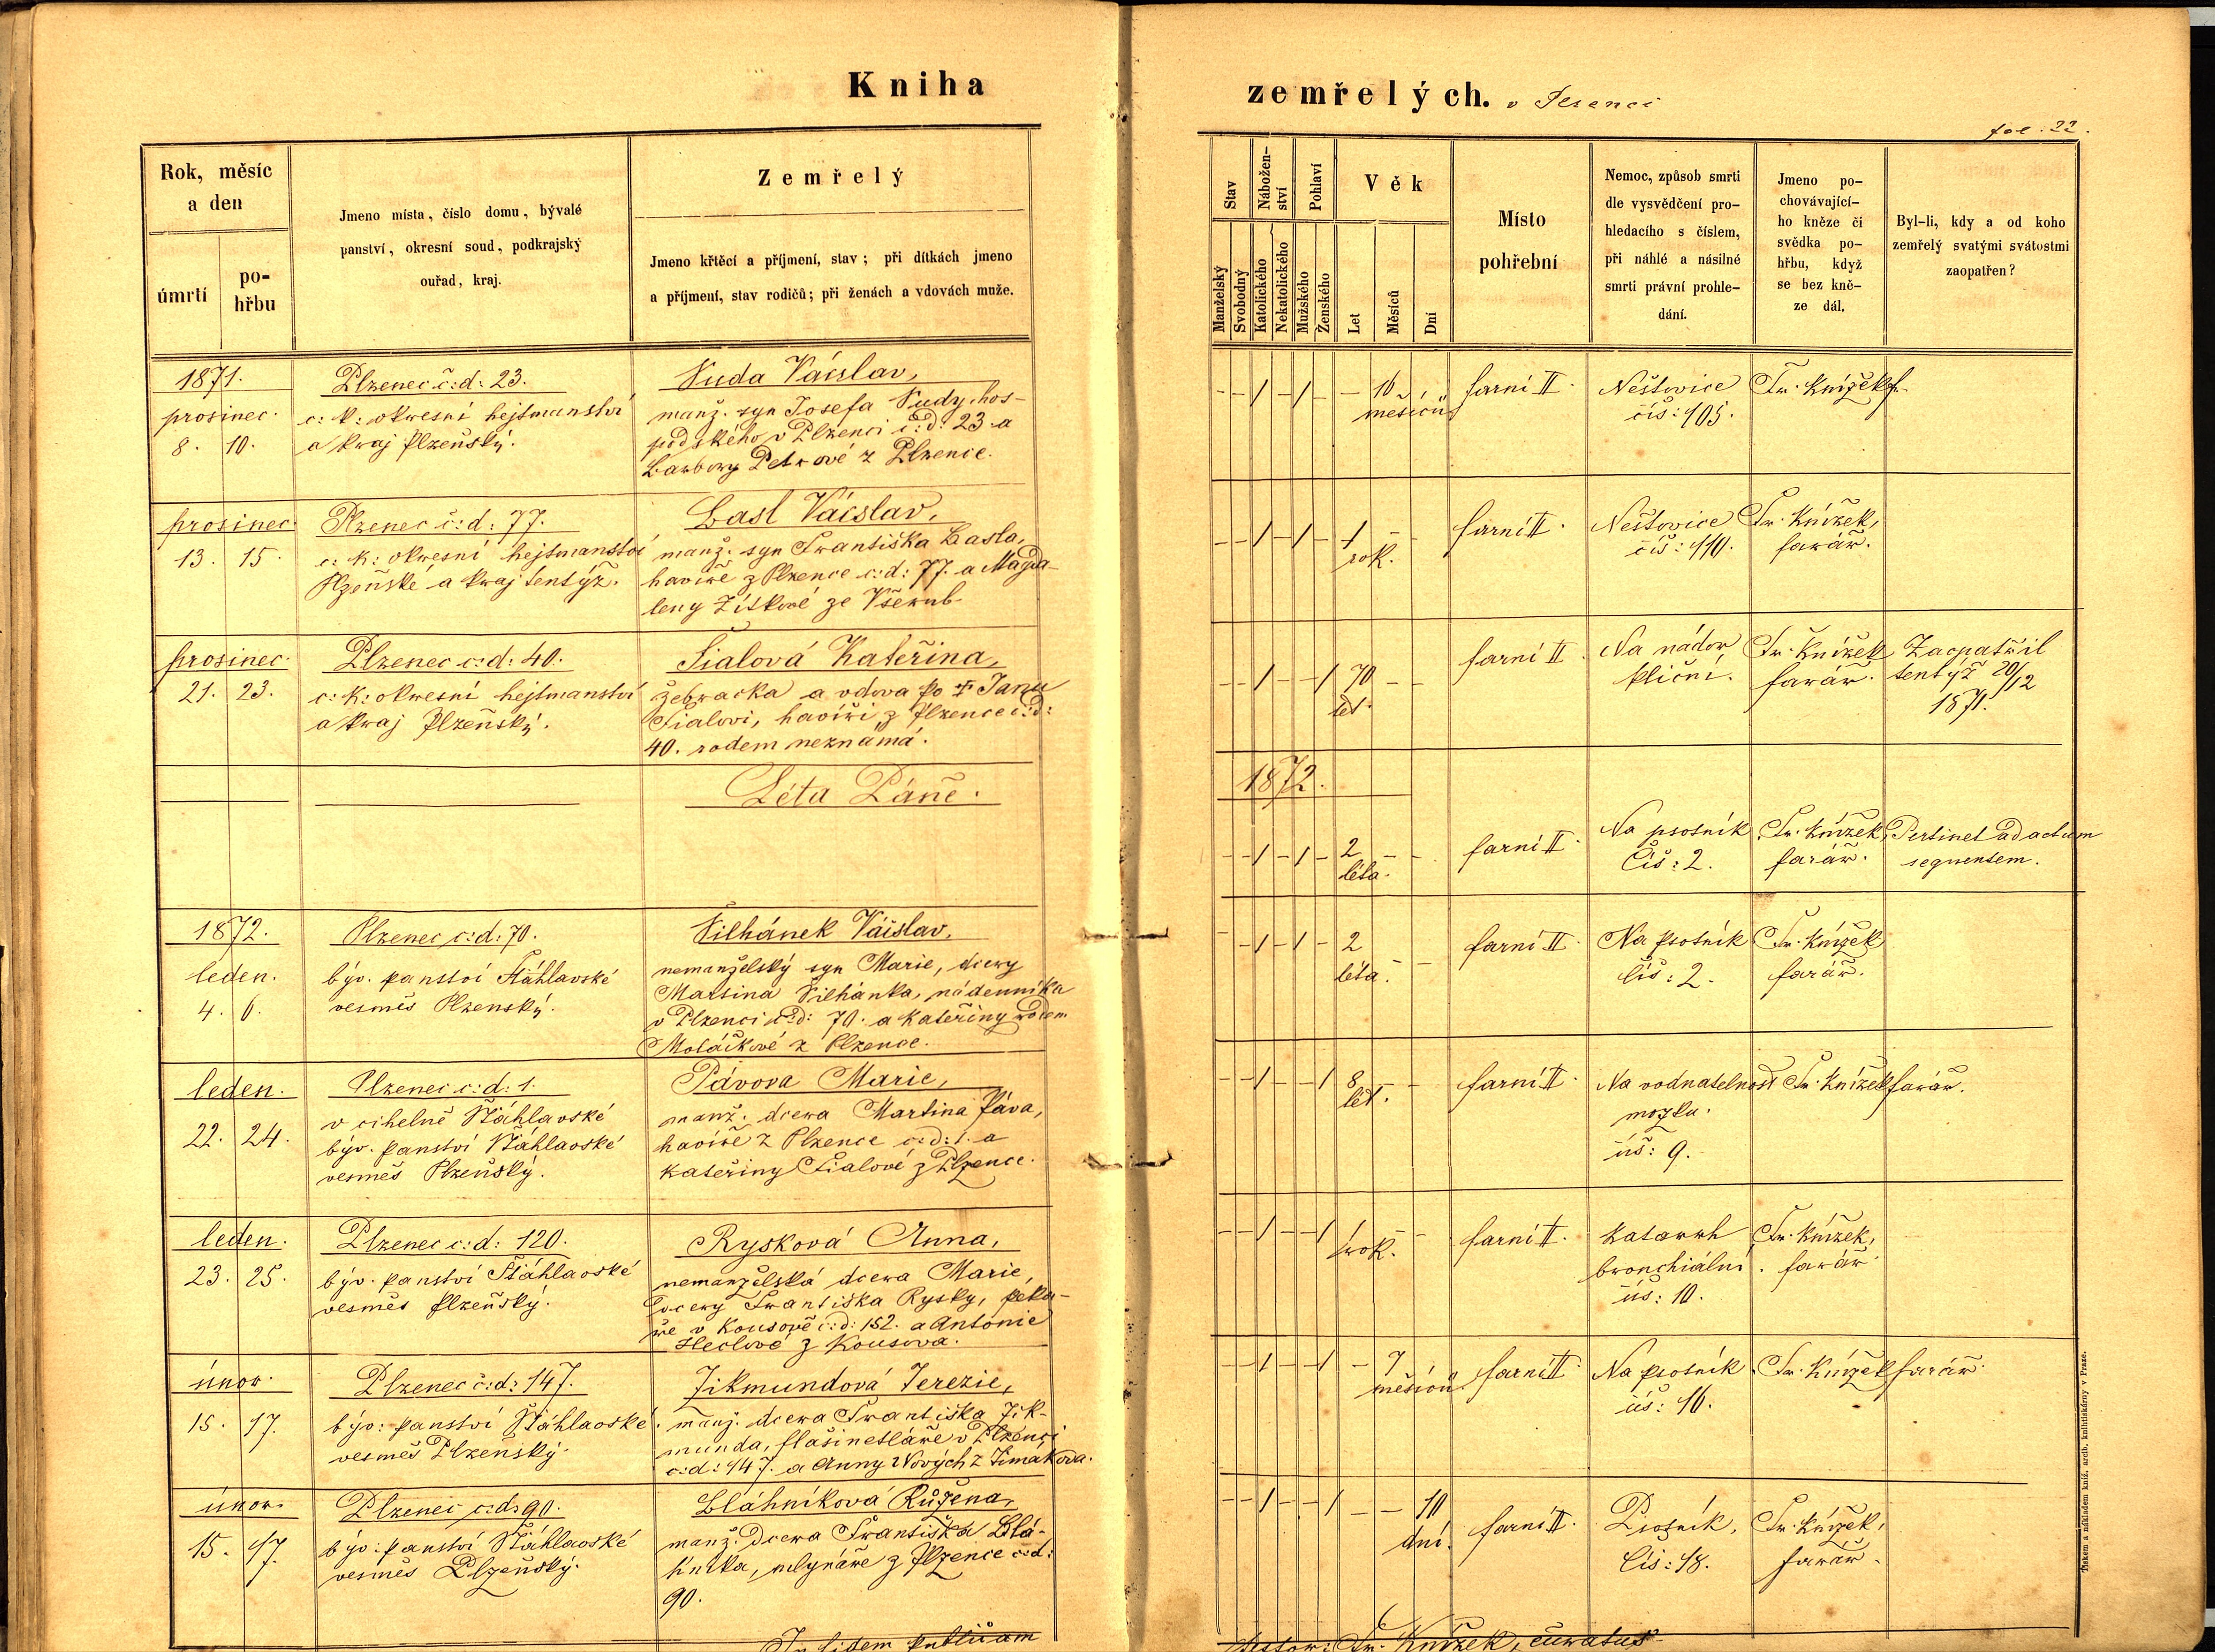 Kniha
Rok, měsíc
a den
úmrtí
po-
hřbu
Jmeno místa, číslo domu, bývalé
panství, okresní soud, podkrajský
ouřad, kraj.
Zemřelý
Jmeno křtěcí a příjmení, stav; při dítkách jmeno
a příjmení, stav rodičů; při ženách a vdovách muže.
1871.
prosinec.
8. 10.
Plzenec č:d: 23.
c: k: okresní hejtmanství
a kraj Plzeňský.
Suda Václav,
manž. syn Josefa Sudy, hos-
podského v Plzenci č:d: 23. a
Barbory Petrové z Plzence.
prosinec.
13. 15.
Plzenec č:d: 77.
c: k: okresní hejtmanství
Plzeňské a kraj tentýž.
Basl Václav,
manž. syn Františka Basla,
havíře z Plzence č:d: 77. a Magda-
leny Zítkové ze Všerub.
prosinec.
21. 23.
Plzenec č:d: 40.
c: k: okresní hejtmanství
a kraj Plzeňský.
Fialová Kateřina,
žebračka a vdova po † Janu
Fialovi, havíři z Plzence č:d:
40. rodem neznámá.
Léta Páně.
1872.
leden.
4. 6.
Plzenec č:d: 70.
býv. panství Šťáhlavské
vesměs Plzenský.
Silhánek Václav,
nemanželský syn Marie, dcery
Martina Silhánka, nádenníka
v Plzenci č:d: 70. a Kateřiny rodem
Moláčkové z Plzence.
leden.
22. 24.
Plzenec č:d: 1.
v cihelně Šťáhlavské
býv. panství Šťáhlavské
vesměs Plzeňský.
Pávova Marie,
manž. dcera Martina Páva,
havíře z Plzence č:d: 1. a
Kateřiny Fialové z Plzence.
leden.
23. 25.
Plzenec č:d: 120.
býv. panství Šťáhlavské
vesměs Plzeňský.
Rysková Anna,
nemanželská dcera Marie,
dcery Františka Rysky, peka-
ře v Kousově č:d: 152. a Antonie
z Kousova.
únor.
15. 17.
Plzenec č:d: 147.
býv: panství Šťáhlavské
vesměs Plzeňský.
Zikmundová Terezie,
manž. dcera Františka Zik-
munda, flašinetláře v Plzenci
č:d: 147. a Anny Nových z Timákova.
únor.
15. 17.
Plzenec č:d: 90.
býv: panství Šťáhlavské
vesměs Plzeňský.
Bláhníková Růžena,
manž. dcera Františka Blá-
hníka, mlynáře z Plzence č:d:
90.
In fidem publicam
zemřelých. v Plzenci
fol. 22.
Stav
Nábožen-
ství
Pohlaví
Věk
Manželský
Svobodný
Katolického
Nekatolického
Mužského
Ženského
Let
Měsíců
Dní
Místo
pohřební
Nemoc, způsob smrti
dle vysvědčení pro-
hledacího s číslem,
při náhlé a násilné
smrti právní prohle-
dání.
Jmeno po-
chovávající-
ho kněze či
svědka po-
hřbu, když
se bez kně-
ze dál.
Byl-li, kdy a od koho
zemřelý svatými svátostmi
zaopatřen?
- - 1 - 1 - - 10 měsíců
farní II.
Neštovice
čís: 105.
Fr. Knížek f.
- - 1 - 1 - 1 - -
rok.
farní II.
Neštovice
čís: 110.
Fr. Knížek,
farář.
- - 1 - - 1 70 - -
let.
farní II.
Na nádor
plicní.
Fr. Knížek
farář.
Zaopatřil
tentýž 20/12
1871.
1872.
- - 1 - 1 - 2 - -
léta.
farní II.
Na psotník
Čís: 2.
Fr. Knížek,
farář.
Pertinet ad actum
sequentem.
- - 1 - 1 - 2 - -
léta.
farní II.
Na psotník
čís: 2.
Fr. Knížek
farář.
- - 1 - - 1 8 - -
let.
farní II.
Na vodnatelnost
mozku.
čís: 9.
Fr. Knížek farář.
- - 1 - - 1 1 - -
rok.
farní II.
Katarrh
bronchiální.
čís: 10.
Fr. Knížek,
farář.
- - 1 - - 1 - 7
měsíců.
farní II.
Na psotník
čís: 16.
Fr. Knížek farář.
- - 1 - - 1 - - 10
dní.
farní II.
Psotník,
Čís: 18.
Fr. Knížek,
farář.
Fr. Knížek, curatus
Tiskem a nákladem kníž. arcib. knihtiskárny v Praze.